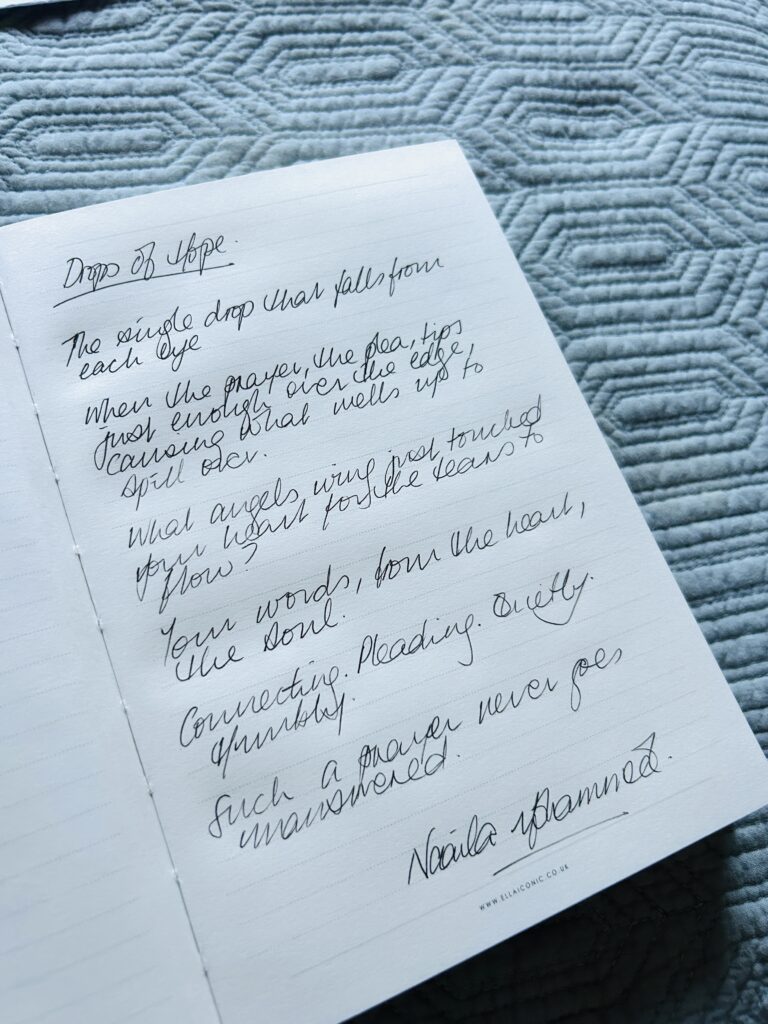 Drops of Hope.
The single drop that falls from
each eye
When the prayer, the plea, tips
just enough over the edge,
causing what wells up to
spill over.
What angels wing just touched
your heart for the tears to
flow?
Your words, from the heart,
the soul.
Connecting. Pleading. Quietly.
Humbly.
Such a prayer never goes
unanswered.
Naaila Mohammed.
WWW.ELLAICONIC.CO.UK